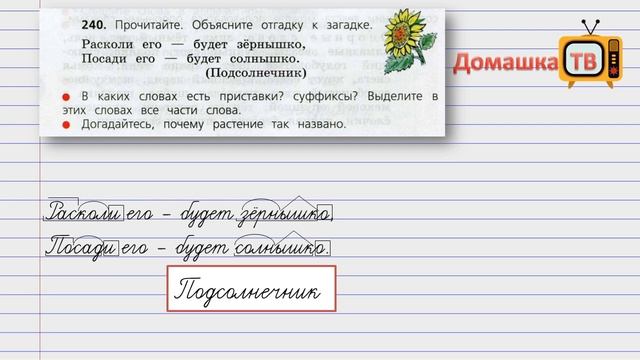 240. Прочитайте. Объясните отгадку к загадке.
Расколи его — будет зёрнышко,
Посади его — будет солнышко.
(Подсолнечник)
● В каких словах есть приставки? суффиксы? Выделите в
этих словах все части слова.
● Догадайтесь, почему растение так названо.
Домашка ТВ
Расколи его – будет зёрнышко,
Посади его – будет солнышко.
Подсолнечник